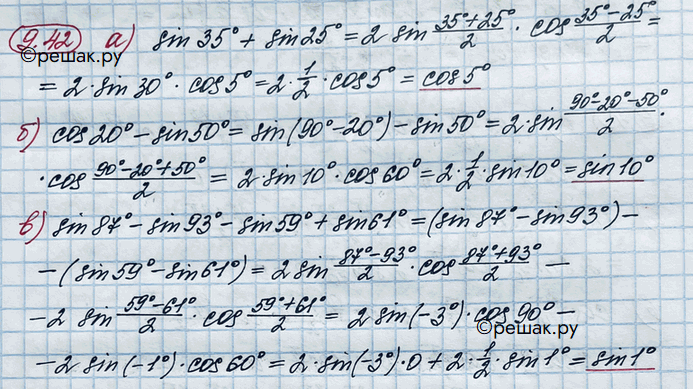 9.42 а) sin 35° + sin 25° = 2 sin (35°+25°)/2 · cos (35°-25°)/2 =
©решак.ру
= 2 · sin 30° · cos 5° = 2 · 1/2 · cos 5° = cos 5°
б) cos 20° - sin 50° = sin(90° - 20°) - sin 50° = 2 · sin (90°-20°-50°)/2 ·
· cos (90°-20°+50°)/2 = 2 · sin 10° · cos 60° = 2 · 1/2 · sin 10° = sin 10°
в) sin 87° - sin 93° - sin 59° + sin 61° = (sin 87° - sin 93°) -
- (sin 59° - sin 61°) = 2 sin (87°-93°)/2 · cos (87°+93°)/2 -
- 2 sin (59°-61°)/2 · cos (59°+61°)/2 = 2 sin(-3°) · cos 90° -
©решак.ру
- 2 sin(-1°) · cos 60° = 2 · sin(-3°) · 0 + 2 · 1/2 · sin 1° = sin 1°